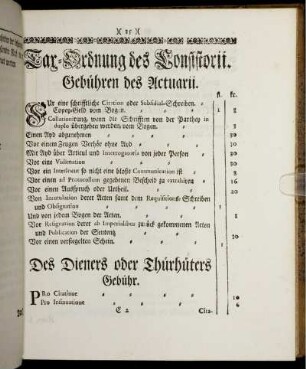 Tax-Ordnung des Consistorii.
Gebühren des Actuarii.
fl. kr.
Für eine schrifftliche Citation oder Subsidial-Schreiben
Copey-Geld vom Bogen 8
Collationirung, wenn die Schrifften von der Parthey in
duplo übergeben werden, vom Bogen
Einen Ayd abzunehmen 20
Vor einem Zeugen Verhör ohne Ayd 10
Mit Ayd über Articul und Interrogatoria von jeder Person 20
Vor eine Vidimation 20
Vor ein so nicht eine blosse Communication ist 8
Vor einen ad Protocollum gegebenen Bescheid zu 16
Vor einen Ausspruch oder Urtheil 20
Von Inrotulation derer Acten samt dem Requisitions-Schreiben
und Obsignation 1
Und von jedem Bogen der Acten 8
Vor Resignation derer zurück gekommenen Acten
und Publication der Sententz 20
Vor einen versiegelten Schein 1
Des Dieners oder Thürhüters
Gebühr.
Pro Citatione 10
Pro Insinuatione 6
Cita-